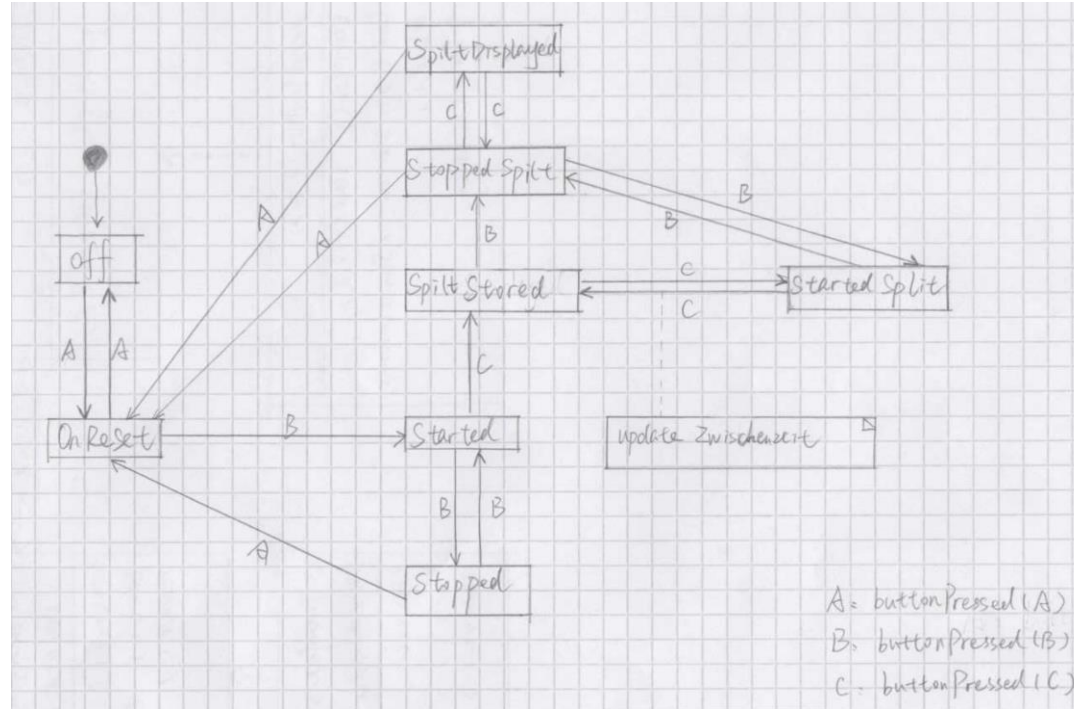 SpiltDisplayed
C C
Stopped Spilt
A A B
B
off
B
SpiltStored C Started Split
C
A A
C
OnReset B Started update Zwischenzeit
B B
A
Stopped
A: buttonPressed(A)
B: buttonPressed(B)
C: buttonPressed(C)